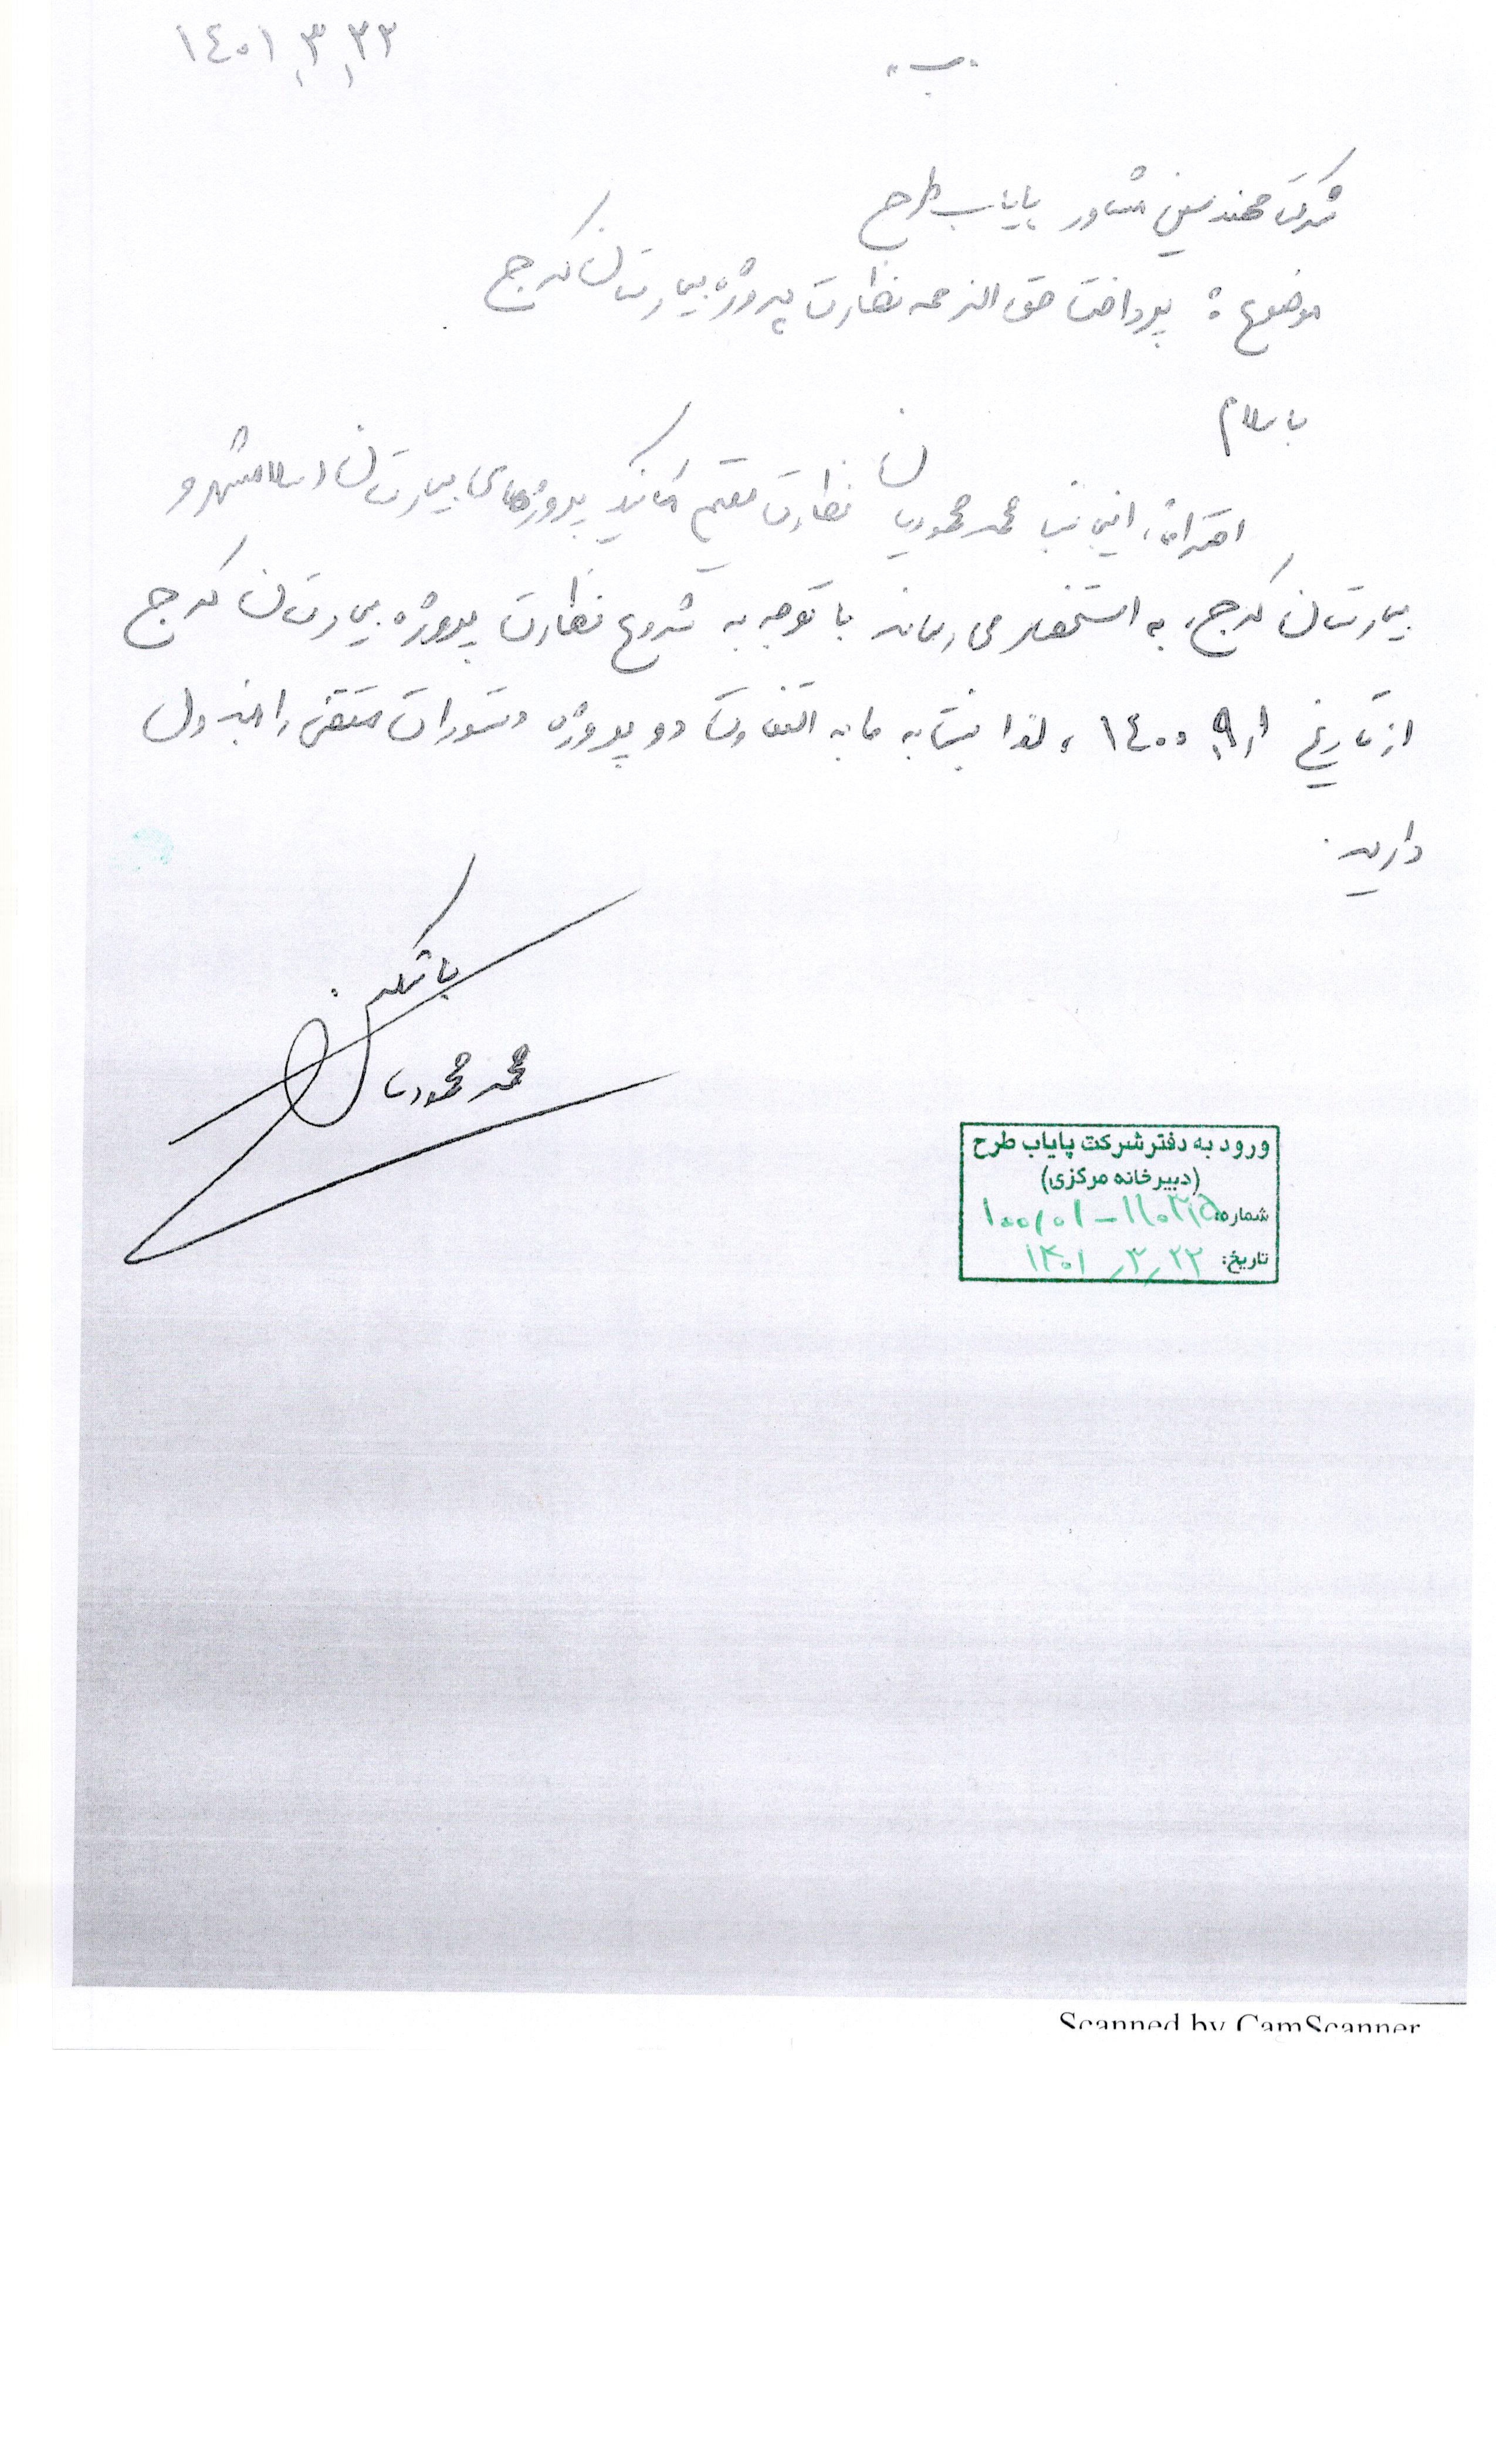 ۱٤۰۱،۳،۲۲
شرکت مهندسین مشاور پایاب طرح
موضوع : پرداخت حق الزحمه نظارت پروژه بیمارستان کرج
با سلام
احتراماً، اینجانب محمد محمودیان نظارت مقیم مکانیک پروژه‌های بیمارستان اسلامشهر و
بیمارستان کرج، به استحضار می رساند با توجه به شروع نظارت پروژه بیمارستان کرج
از تاریخ ۱٤۰۰،۹،۱ ، لذا نسبت به مابه التفاوت دو پروژه دستورات مقتضی را مبذول
دارید.
با تشکر
محمد محمودیان
ورود به دفتر شرکت پایاب طرح
(دبیرخانه مرکزی)
شماره:
تاریخ: ۱۴۰۱،۳،۲۲
Scanned by CamScanner